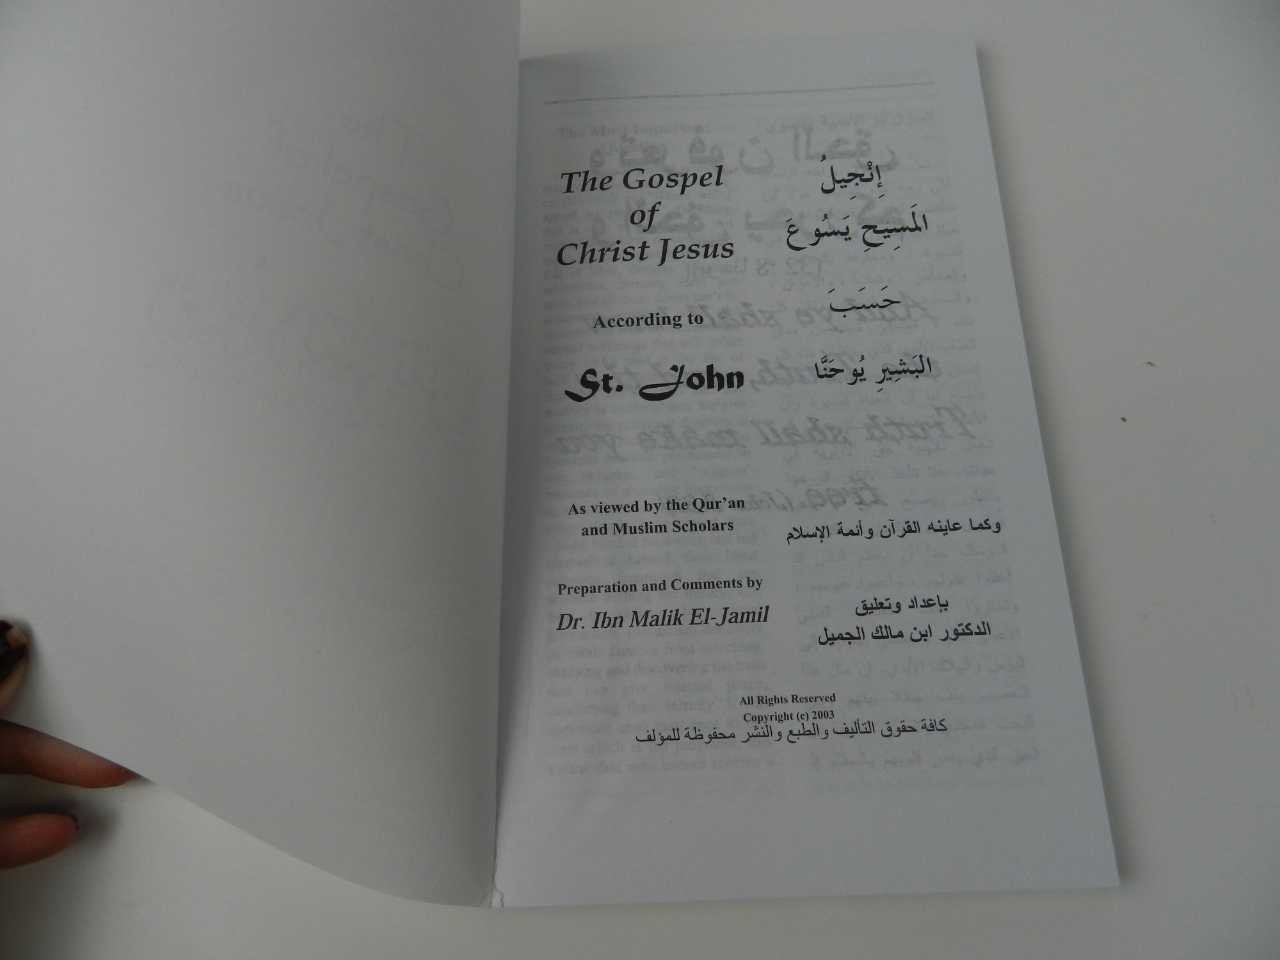 The Gospel
of
Christ Jesus
According to
St. John
As viewed by the Qur'an
and Muslim Scholars
Preparation and Comments by
Dr. Ibn Malik El-Jamil
إِنْجِيلُ
المَسِيحِ يَسُوعَ
حَسَبَ
البَشِيرِ يُوحَنَّا
وكما عاينه القرآن وأئمة الإسلام
بإعداد وتعليق
الدكتور ابن مالك الجميل
All Rights Reserved
Copyright (c) 2003
كافة حقوق التأليف والطبع والنشر محفوظة للمؤلف